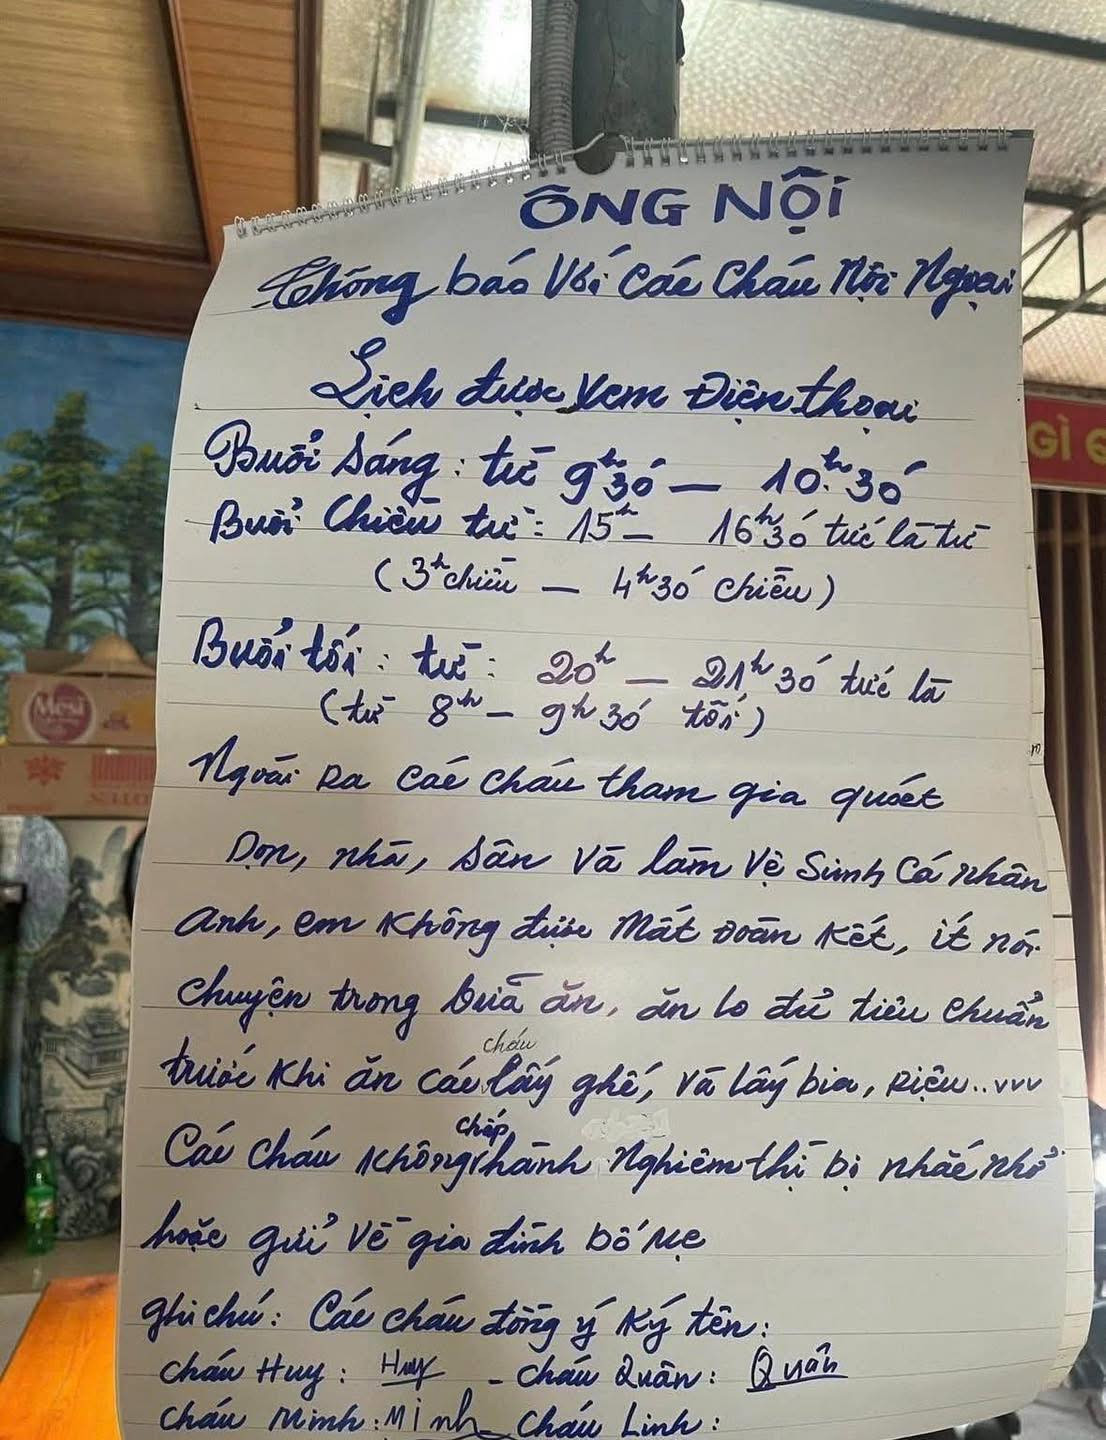 ÔNG NỘI
Thông báo Với Các Cháu Nội Ngoại
Lịch được xem Điện thoại
Buổi Sáng: từ 9h30 — 10h30
Buổi Chiều từ: 15h — 16h30 tức là từ
(3h chiều — 4h30 chiều)
Buổi tối: từ: 20h — 21h30 tức là
(từ 8h — 9h30 tối)
Ngoài Ra các cháu tham gia quét
Dọn, nhà, sân và làm vệ sinh cá nhân
Anh, em không được Mất Đoàn Kết, ít nói
chuyện trong bữa ăn, ăn lo đủ tiêu chuẩn
trước khi ăn các cháu lấy ghế, và lấy bia, Riệu..vvv
Các cháu không chấp hành Nghiêm thì bị nhắc nhở
hoặc gửi về gia đình bố Mẹ
ghi chú: Các cháu đồng ý ký tên:
cháu Huy: Huy - cháu Quân: Quân
cháu Minh: Minh cháu Linh:
GÌ